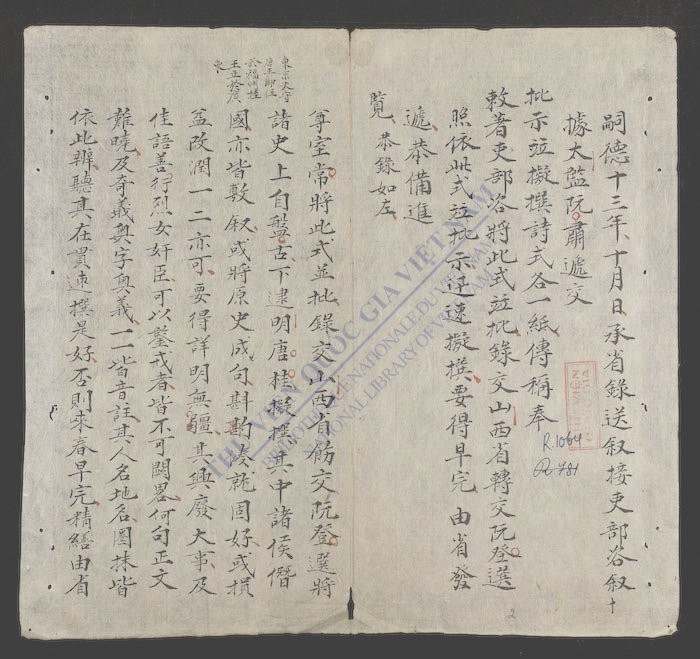 嗣德十三年十月日承省錄送叙接吏部咨叙十
據太監阮肅遞交
批示並擬撰詩式各一紙傳稱奉
敕著吏部咨將此式並批錄交山西省轉交阮登選
照依此式並批示迅速擬撰要得早完由省發
遞恭備進
覽恭錄如左
東京大守
唐王即位
於福州桂
王立於廣
東
尊室常將此式並批錄交山西省飭交阮登選將
諸史上自盤古下逮明唐桂擬撰其中諸侯僭
國亦皆敷叙或將原史成句斟酌湊就固好或損
益改潤一二亦可要得詳明無疆其興廢大事及
佳語善行烈女奸臣可以鑒戒者皆不可闕畧何句正文
難曉及奇義奧字奧義一一皆音註其人名地名圈抹皆
依此辨聽其在貫速撰是好否則來春早完精繕由省
THƯ VIỆN QUỐC GIA VIỆT NAM
BIBLIOTHÈQUE NATIONALE DU VIETNAM
NATIONAL LIBRARY OF VIETNAM
R.1064
R.781
2